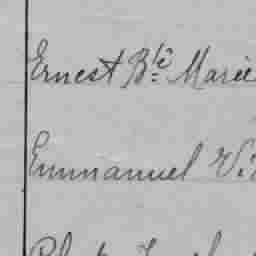 Ernest Bte Marie
Emmanuel V.